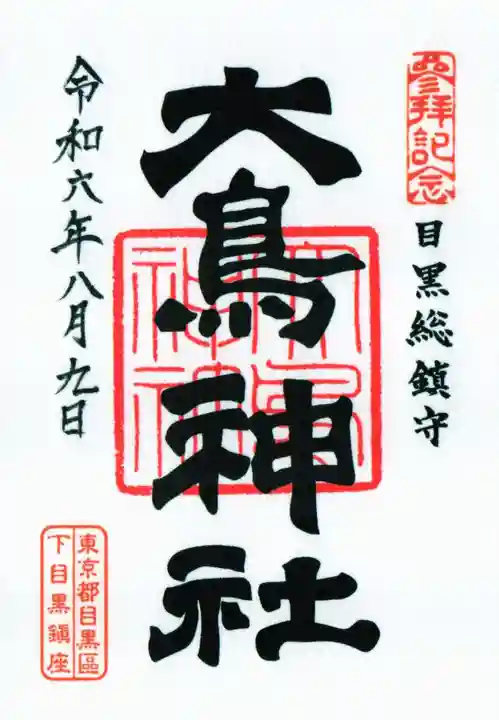 参拝記念
目黒総鎮守
大鳥神社
令和六年八月九日
東京都目黒區
下目黒鎭座